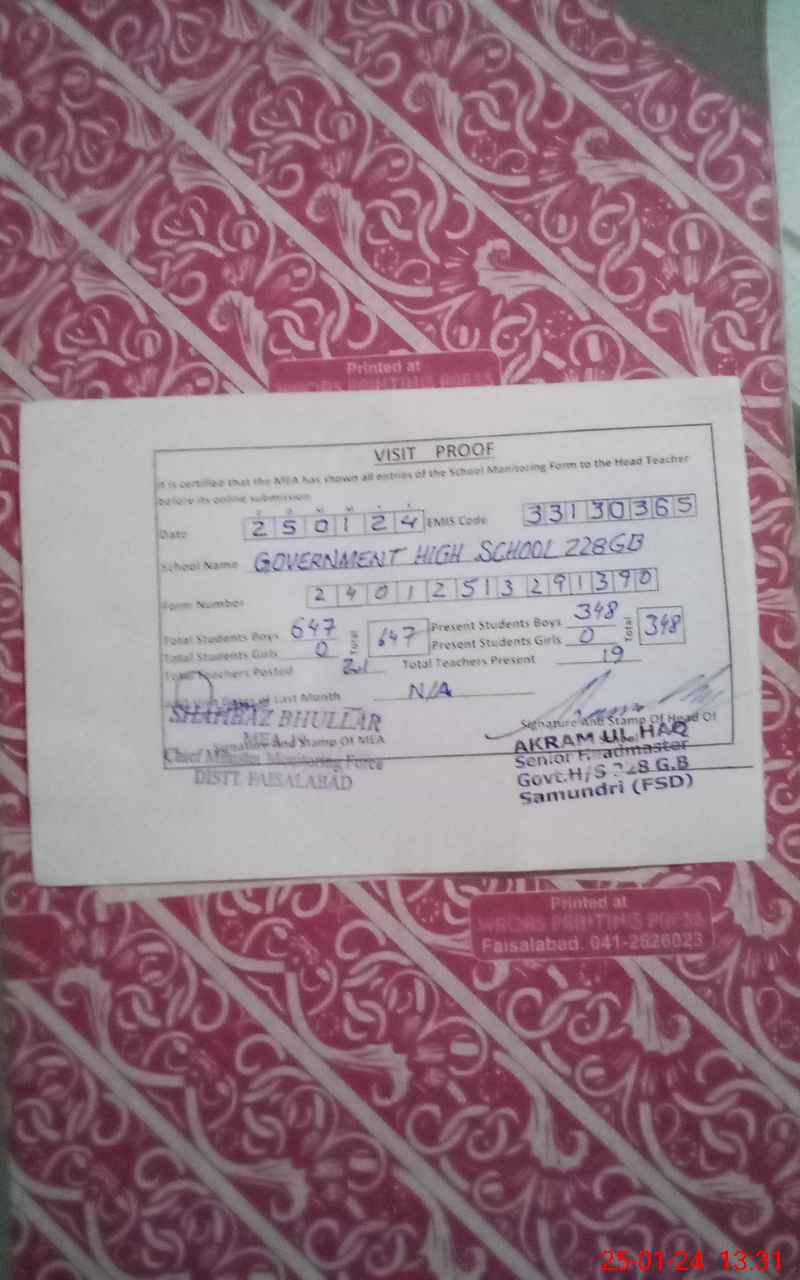 Printed at
VISIT PROOF
It is certified that the MEA has shown all entries of the School Monitoring Form to the Head Teacher
before its online submission
Date 250124 EMIS Code 33130365
School Name GOVERNMENT HIGH SCHOOL 228GB
Form Number 24012513291390
Total Students Boys 647 Total 647 Present Students Boys 348 Total 348
Total Students Girls 0 Present Students Girls 0
Total Teachers Posted Total Teachers Present 19
of Last Month N/A
SHAHBAZ BHULLAR
MEA
Signature and Stamp Of MEA
Chief Minister Monitoring Force
DISTT FAISALABAD
Signature And Stamp Of Head Of
AKRAM UL HAQ
Senior Headmaster
Govt.H/S 228 G.B
Samundri (FSD)
Printed at
PRINTING PRESS
Faisalabad. 041-2626023
25-01-24 13:31